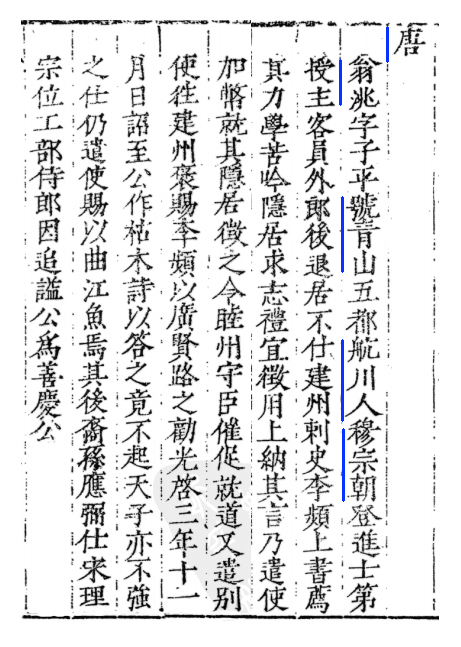 唐
翁洮字子平號青山五都航川人穆宗朝登進士第
授主客員外郎後退居不仕建州刺史李頻上書薦
其力學苦吟隱居求志禮宜徵用上納其言乃遣使
加幣就其隱居徵之令睦州守臣催促就道又遣別
使徃建州褒賜李頻以廣賢路之勸光啓三年十一
月日詔至公作枯木詩以答之竟不起天子亦不強
之仕仍遣使賜以曲江魚焉其後裔孫應弼仕宋理
宗位工部侍郎因追謚公爲善慶公